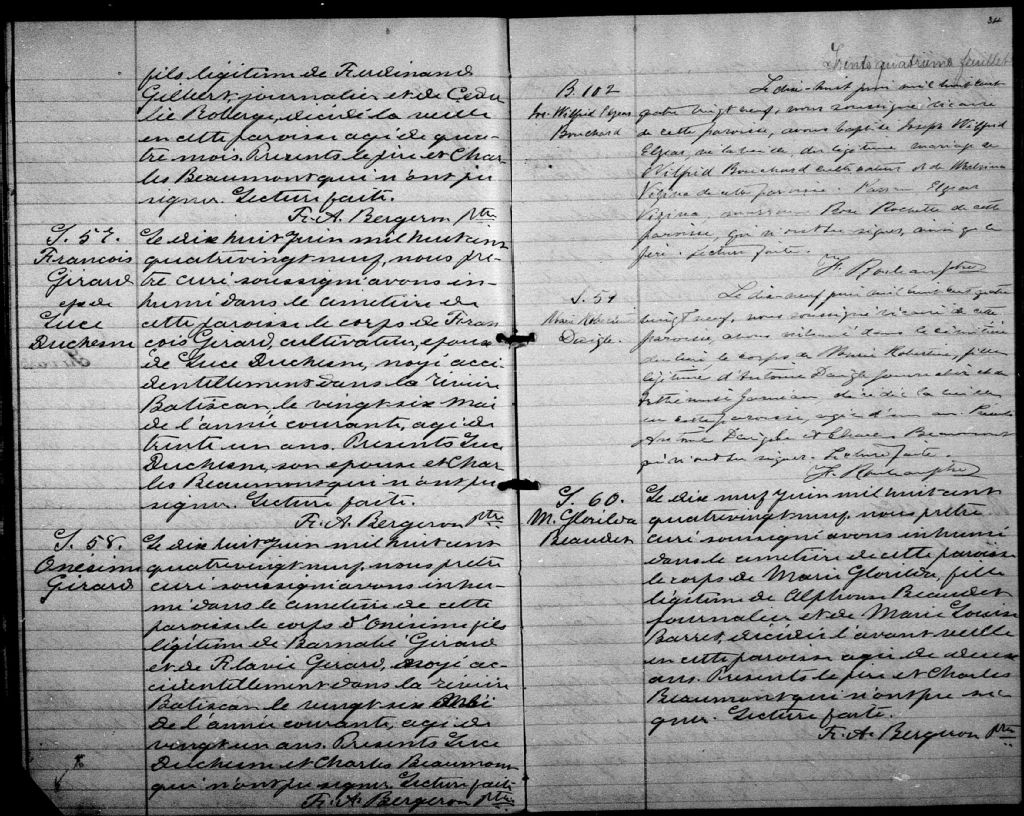 fils légitime de Ferdinand
Gilbert, journalier et de Cédu-
lie Roberge, décédé la veille
en cette paroisse agé de qua-
tre mois. Présents le père et Char-
les Beaumont qui n'ont pu
signer. Lecture faite.
Fr. A. Bergeron Ptre
S. 57.
François
Girard
ep. de
Luce
Duchesne
Le dix huit Juin mil huit cent
quatrevingt neuf, nous prê-
tre curé soussigné avons in-
humé dans le cimetière de
cette paroisse le corps de Fran-
cois Girard, cultivateur, epoux
de Luce Duchesne, noyé acci-
dentellement dans la rivière
Batiscan, le vingt six Mai
de l'année courante, agé de
trente un ans. Présents Luce
Duchesne, son epouse et Char-
les Beaumont qui n'ont pu
signer. Lecture faite.
Fr. A. Bergeron Ptre
S. 58.
Onésime
Girard
Le dix huit Juin mil huit cent
quatrevingt neuf, nous prêtre
curé soussigné avons inhu-
mé dans le cimetière de cette
paroisse le corps d'Onésime fils
légitime de Barnabé Girard
et de Flavie Gerard, noyé ac-
cidentellement dans la rivière
Batiscan le vingt six Mai
de l'année courante, agé de
vingt un ans. Présents Luce
Duchesne et Charles Beaumont
qui n'ont pu signer. Lecture faite
Fr. A. Bergeron Ptre
34
Trente quatrième feuillet
B 102
Jos. Wilfrid Elzéar
Bouchard
Le dix-huit juin mil huit cent
quatre vingt neuf, nous soussigné vicaire
de cette paroisse, avons baptisé Joseph Wilfrid
Elzéar, né la veille, du légitime mariage de
Wilfrid Bouchard cultivateur et de
Vézina de cette paroisse. Parrain Elzéar
Vézina, marraine Rose Rochette de cette
paroisse, qui n'ont su signer, ainsi que le
père. Lecture faite.
S. 59
Marie
Daigle.
Le dix-neuf juin mil huit cent quatre
vingt neuf, nous soussigné vicaire de cette
paroisse, avons inhumé dans le cimetière
le corps de Marie fille
légitime d'Antoine Daigle journalier et
décédée la veille
en cette paroisse, agée d'un an. Présents
Antoine Daigle et Charles Beaumont
qui n'ont su signer. Lecture faite.
S. 60.
M. Glorilda
Beaudet
Le dix neuf Juin mil huit cent
quatrevingt neuf, nous prêtre
curé soussigné avons inhumé
dans le cimetière de cette paroisse
le corps de Marie Glorilda, fille
légitime de Alphonse Beaudet
journalier et de Marie Louise
Barret, décédée l'avant veille
en cette paroisse agée de deux
ans. Présents le père et Charles
Beaumont qui n'ont pu si-
gner. Lecture faite.
Fr. A. Bergeron Ptre